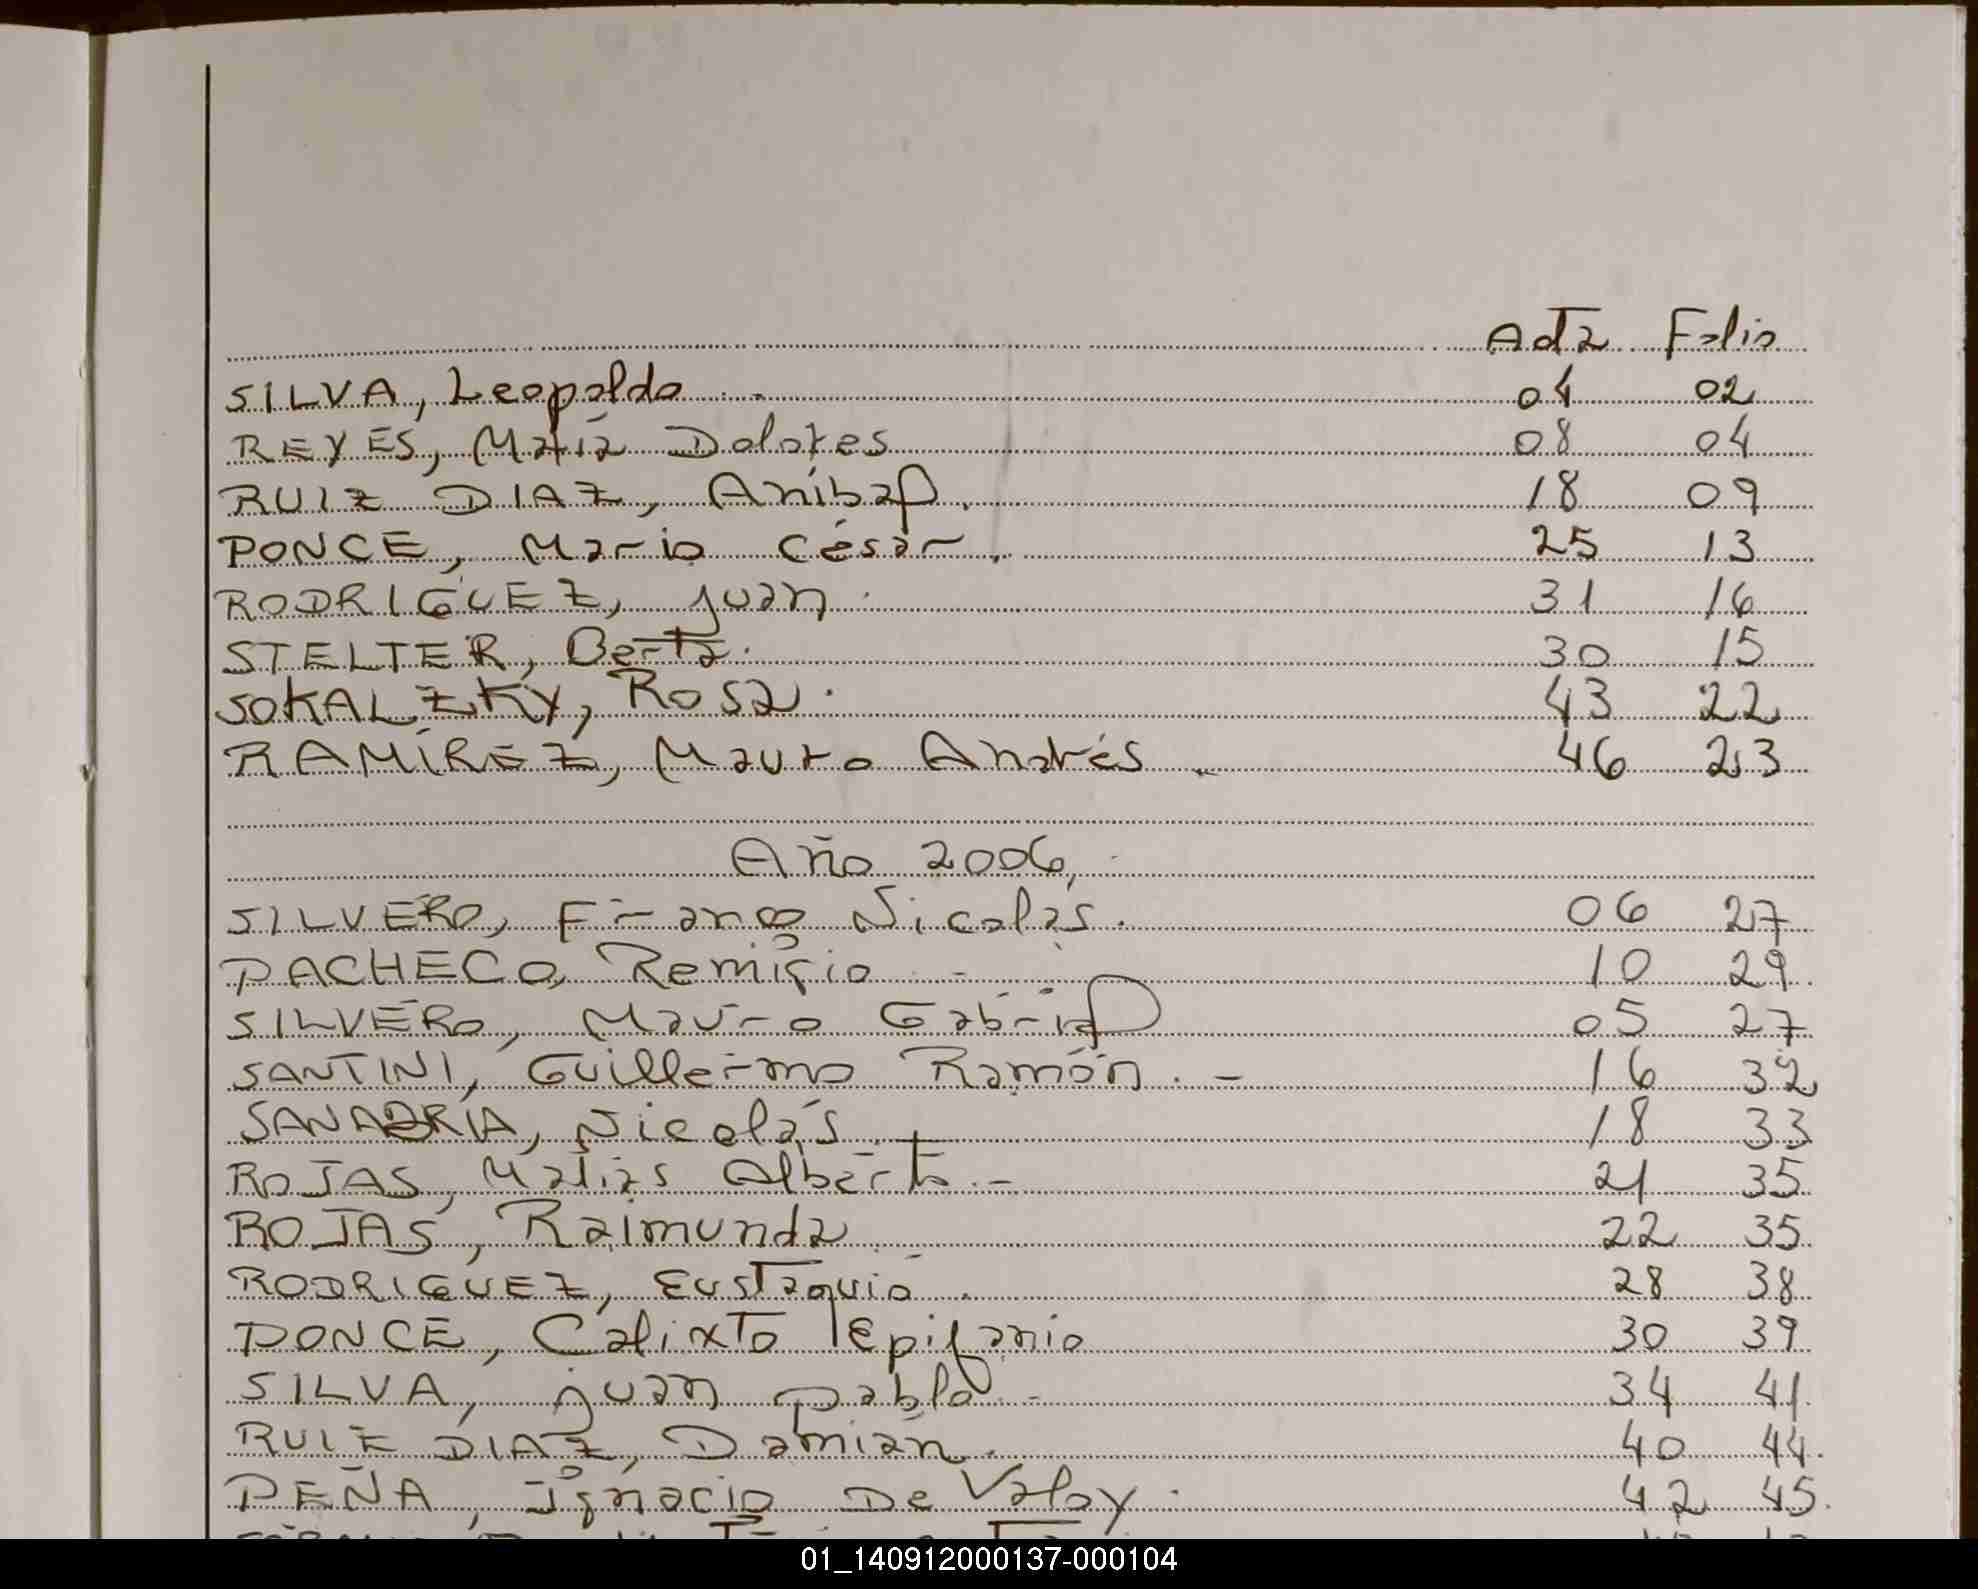 Acta Folio
SILVA, Leopoldo . 04 02
REYES, María Dolores 08 04
RUIZ DIAZ, Aníbal. 18 09
PONCE, Mario César. 25 13
RODRIGUEZ, Juan. 31 16
STELTER, Berta. 30 15
SOKALZKY, Rosa. 43 22
RAMÍREZ, Mauro Andrés . 46 23
Año 2006,.
SILVERO, Franco Nicolás. 06 27
PACHECO, Remigio - 10 29
SILVERO, Mauro Gabriel 05 27
SANTINI, Guillermo Ramón. - 16 32
SANABRIA, Nicolás. 18 33
ROJAS, Matías Alberto. - 21 35
ROJAS, Raimunda 22 35
RODRIGUEZ, Eustaquio . 28 38
PONCE, Calixto Epifanio 30 39
SILVA, Juan Pablo. - 34 41
RUIZ DIAZ, Damián. 40 44.
PEÑA, Ignacio De Valoy. 42 45.
01_140912000137-000104